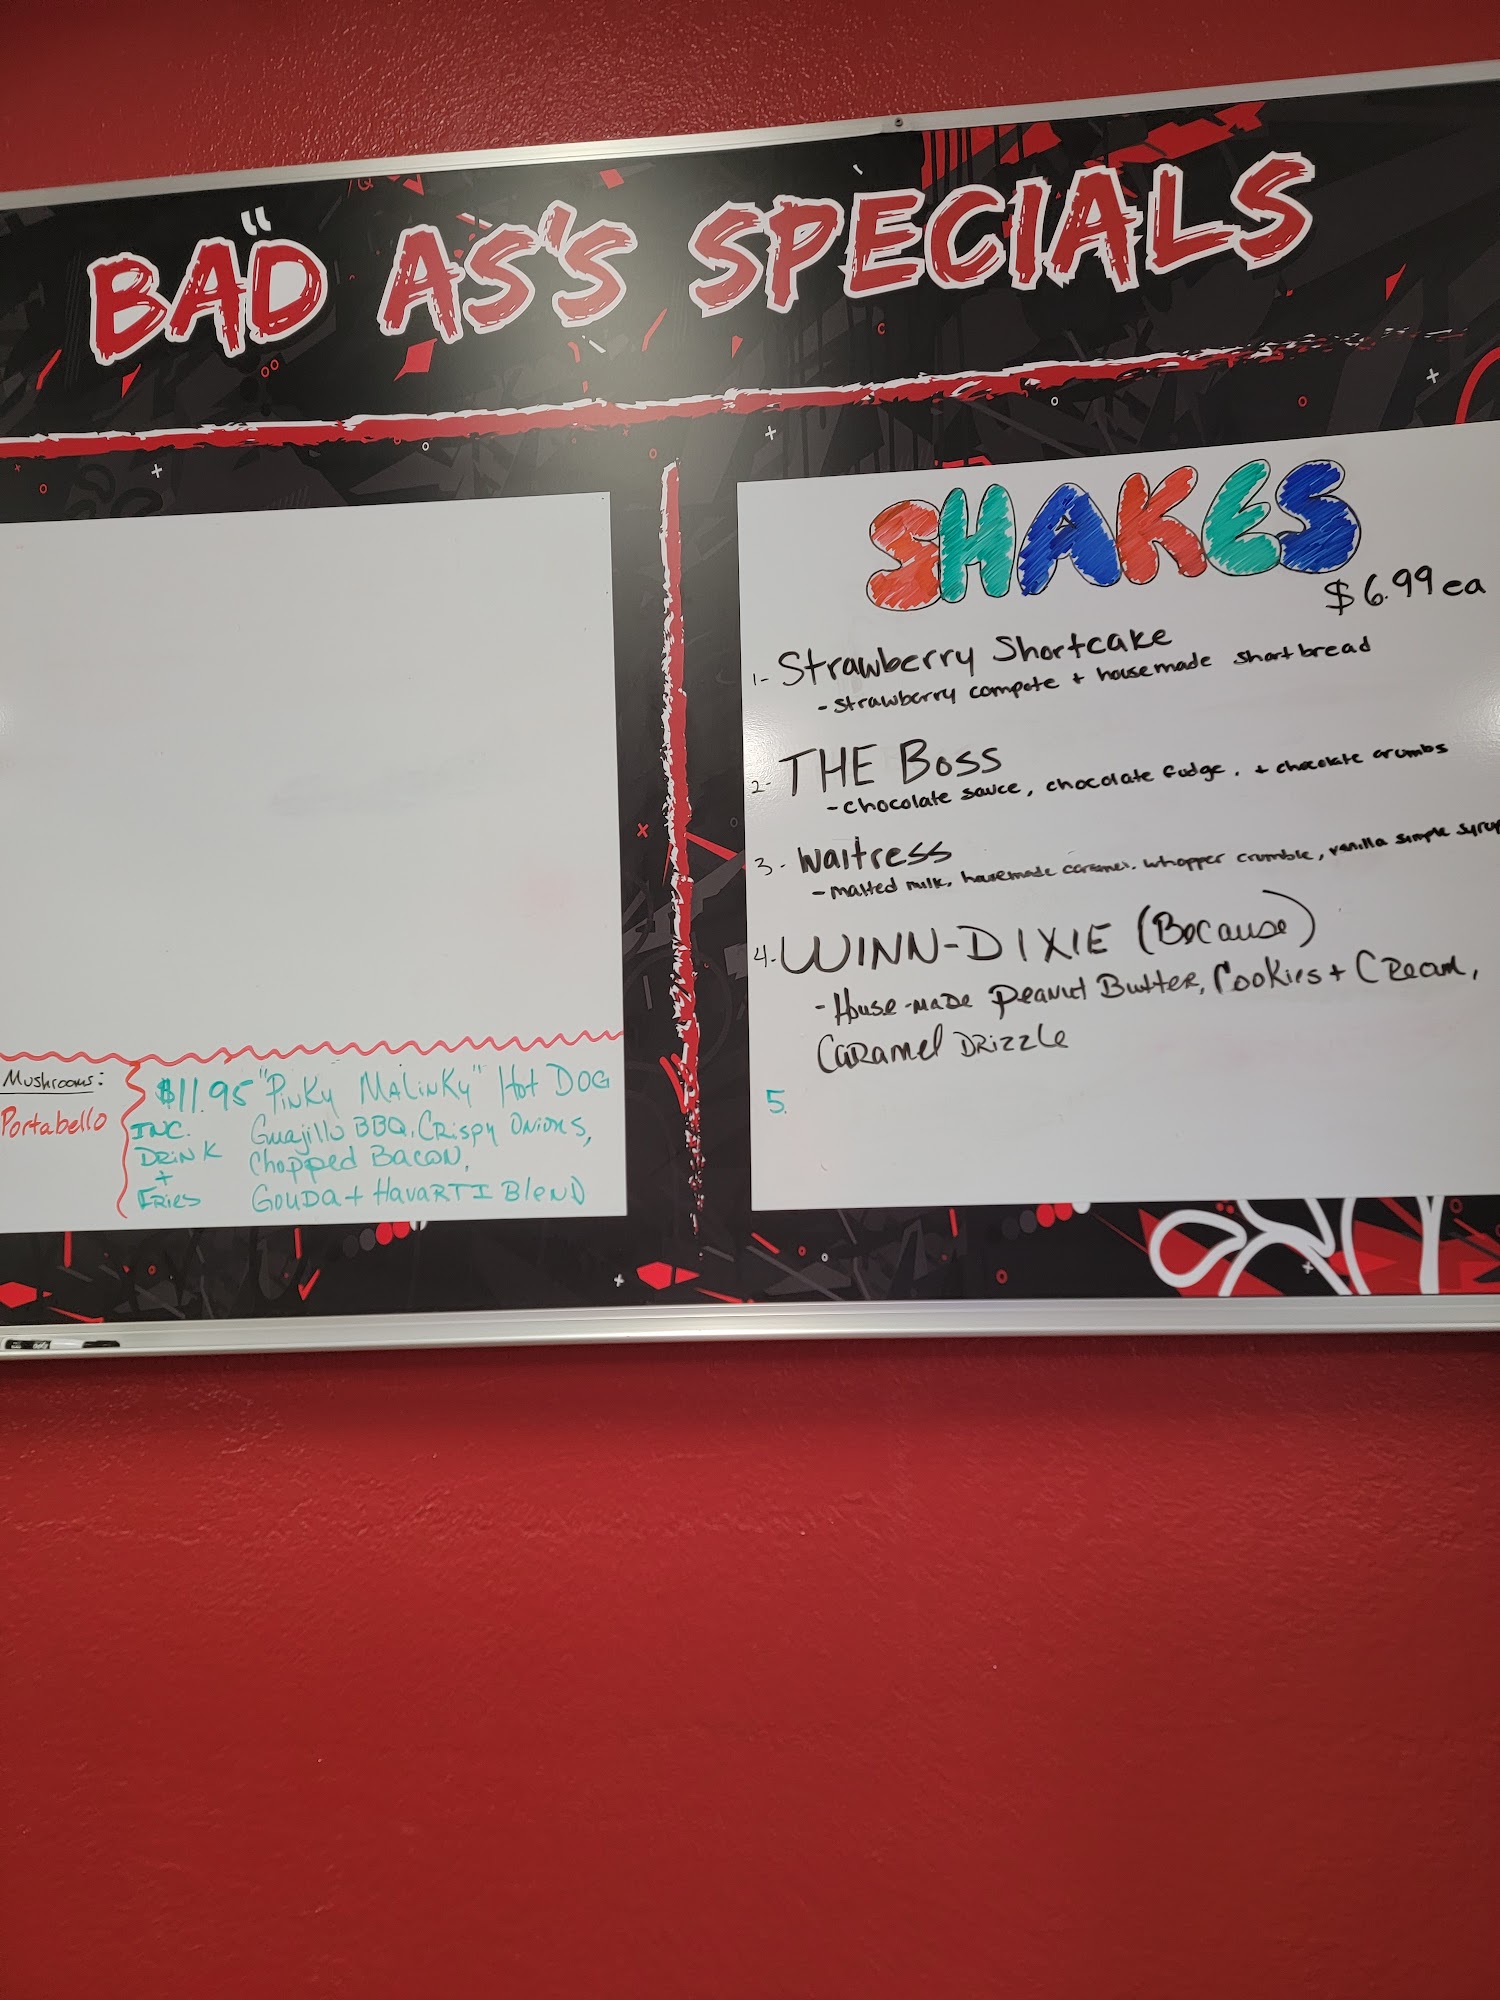 BAD AS'S SPECIALS
Mushrooms:
Portabello
$11.95 "Pinky Malinky" Hot Dog
INC. DRINK + Fries
Guajillo BBQ, Crispy Onions,
Chopped Bacon,
Gouda + Havarti Blend
SHAKES
$6.99 ea
1- Strawberry Shortcake
- strawberry compote + housemade shortbread
2- THE Boss
- chocolate sauce, chocolate fudge, + chocolate crumbs
3- Waitress
- malted milk, housemade caramel, whopper crumble, vanilla simple syrup
4- WINN-DIXIE (Because)
- House-made Peanut Butter, Cookies + Cream,
Caramel Drizzle
5.